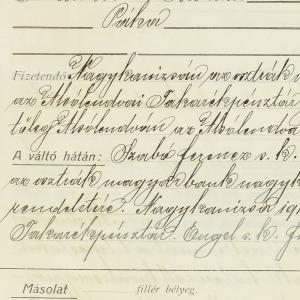 Páka
Fizetendő Nagykanizsán az osztrák
az Alsólendvai Takarékpénztár
tőleg Alsólendván az Alsólendva
A váltó hátán: Szabó Ferencz s. k.
az osztrák magyar bank nagyk
rendeletére. Nagykanizsa ig
Takarékpénztár. Engel s. k. F
Másolat fillér bélyeg.